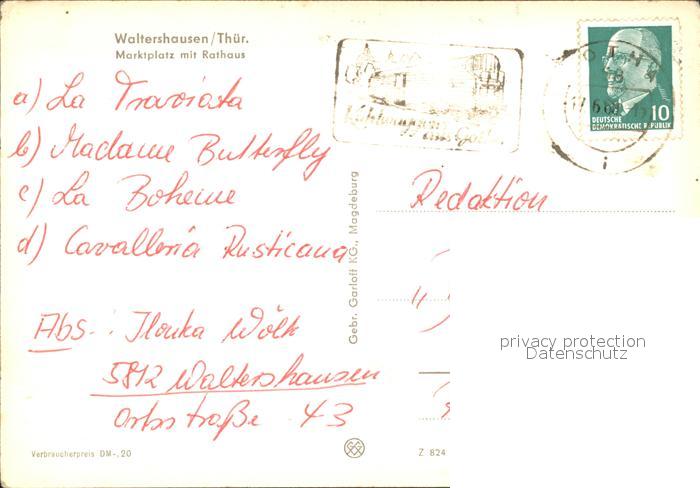 Waltershausen/Thür.
Marktplatz mit Rathaus
a) La Traviata
b) Madame Butterfly
c) La Boheme
d) Cavalleria Rusticana
Abs.: Ilonka Wölk
5812 Waltershausen
straße 43
Verbraucherpreis DM -,20
Gebr. Garloff KG., Magdeburg
Z 824
DEUTSCHE
DEMOKRATISCHE REPUBLIK
10
Redaktion
privacy protection
Datenschutz